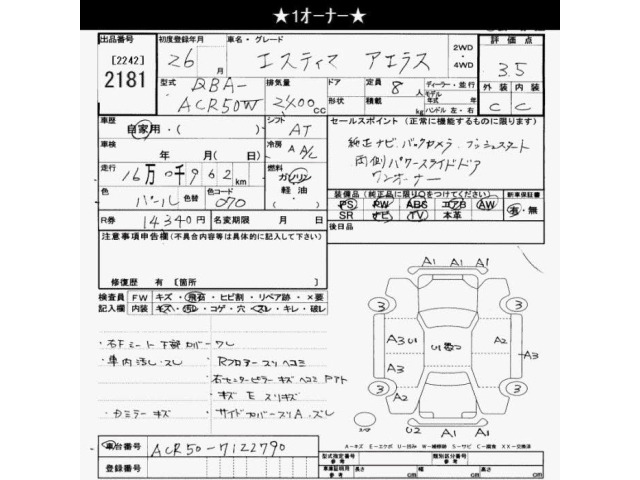 ★1オーナー★
出品番号 初度登録年月 車名・グレード 2WD・4WD 評価点
[2242] 2181 26 月 エスティマ アエラス 3.5
型式 DBA-ACR50W 排気量 2400cc ドア 形状 定員 8人 積載 kg ディーラー・並行 モデル年式 年 ハンドル 左・右 外装 内装
C C
車歴 自家用・( ) シフト AT セールスポイント (正常に機能するものに限ります)
車検 年 月(日) 冷房 A A/C 純正ナビ、バックカメラ、プッシュスタート
走行 16万0千962km 燃料 ガソリン 軽油・( ) 両側パワースライドドア
ワンオーナー
色 パール 色替 色コード 070 装備品 (純正品に限り○をつけてください) 新車保証書
PS PW ABS エアB AW 有・無
R券 14340円 名変期限 月 日 SR ナビ TV 本革
注意事項申告欄(不具合内容等は具体的に記入して下さい) 後日品
修復歴 有 [箇所
検査員 FW キズ・飛石・ヒビ割・リペア跡・×要
記入欄 内装 キズ・汚レ・コゲ・穴・スレ・キレ・破レ
A1 A1 A1
3 3
A3 U1 A2 A3
A3 A3
3 A2 3
U2 A1 A1
スペア
・右Fシート下部カバーワレ
・車内汚し・スレ ・Rフロアースリヘコミ
・右センターピラーキズヘコミPアト
・キズ E スリキズ
・ミラーキズ ・サイドカバースリA、ズレ
A-キズ E-エクボ U-凹み W-補修跡 S-サビ C-腐食 XX-交換済
車台番号 ACR50-7122790
登録番号
型式指定番号 参考 類別区分番号 参考
車庫証明用 参考 長さ cm 幅 cm 高さ cm